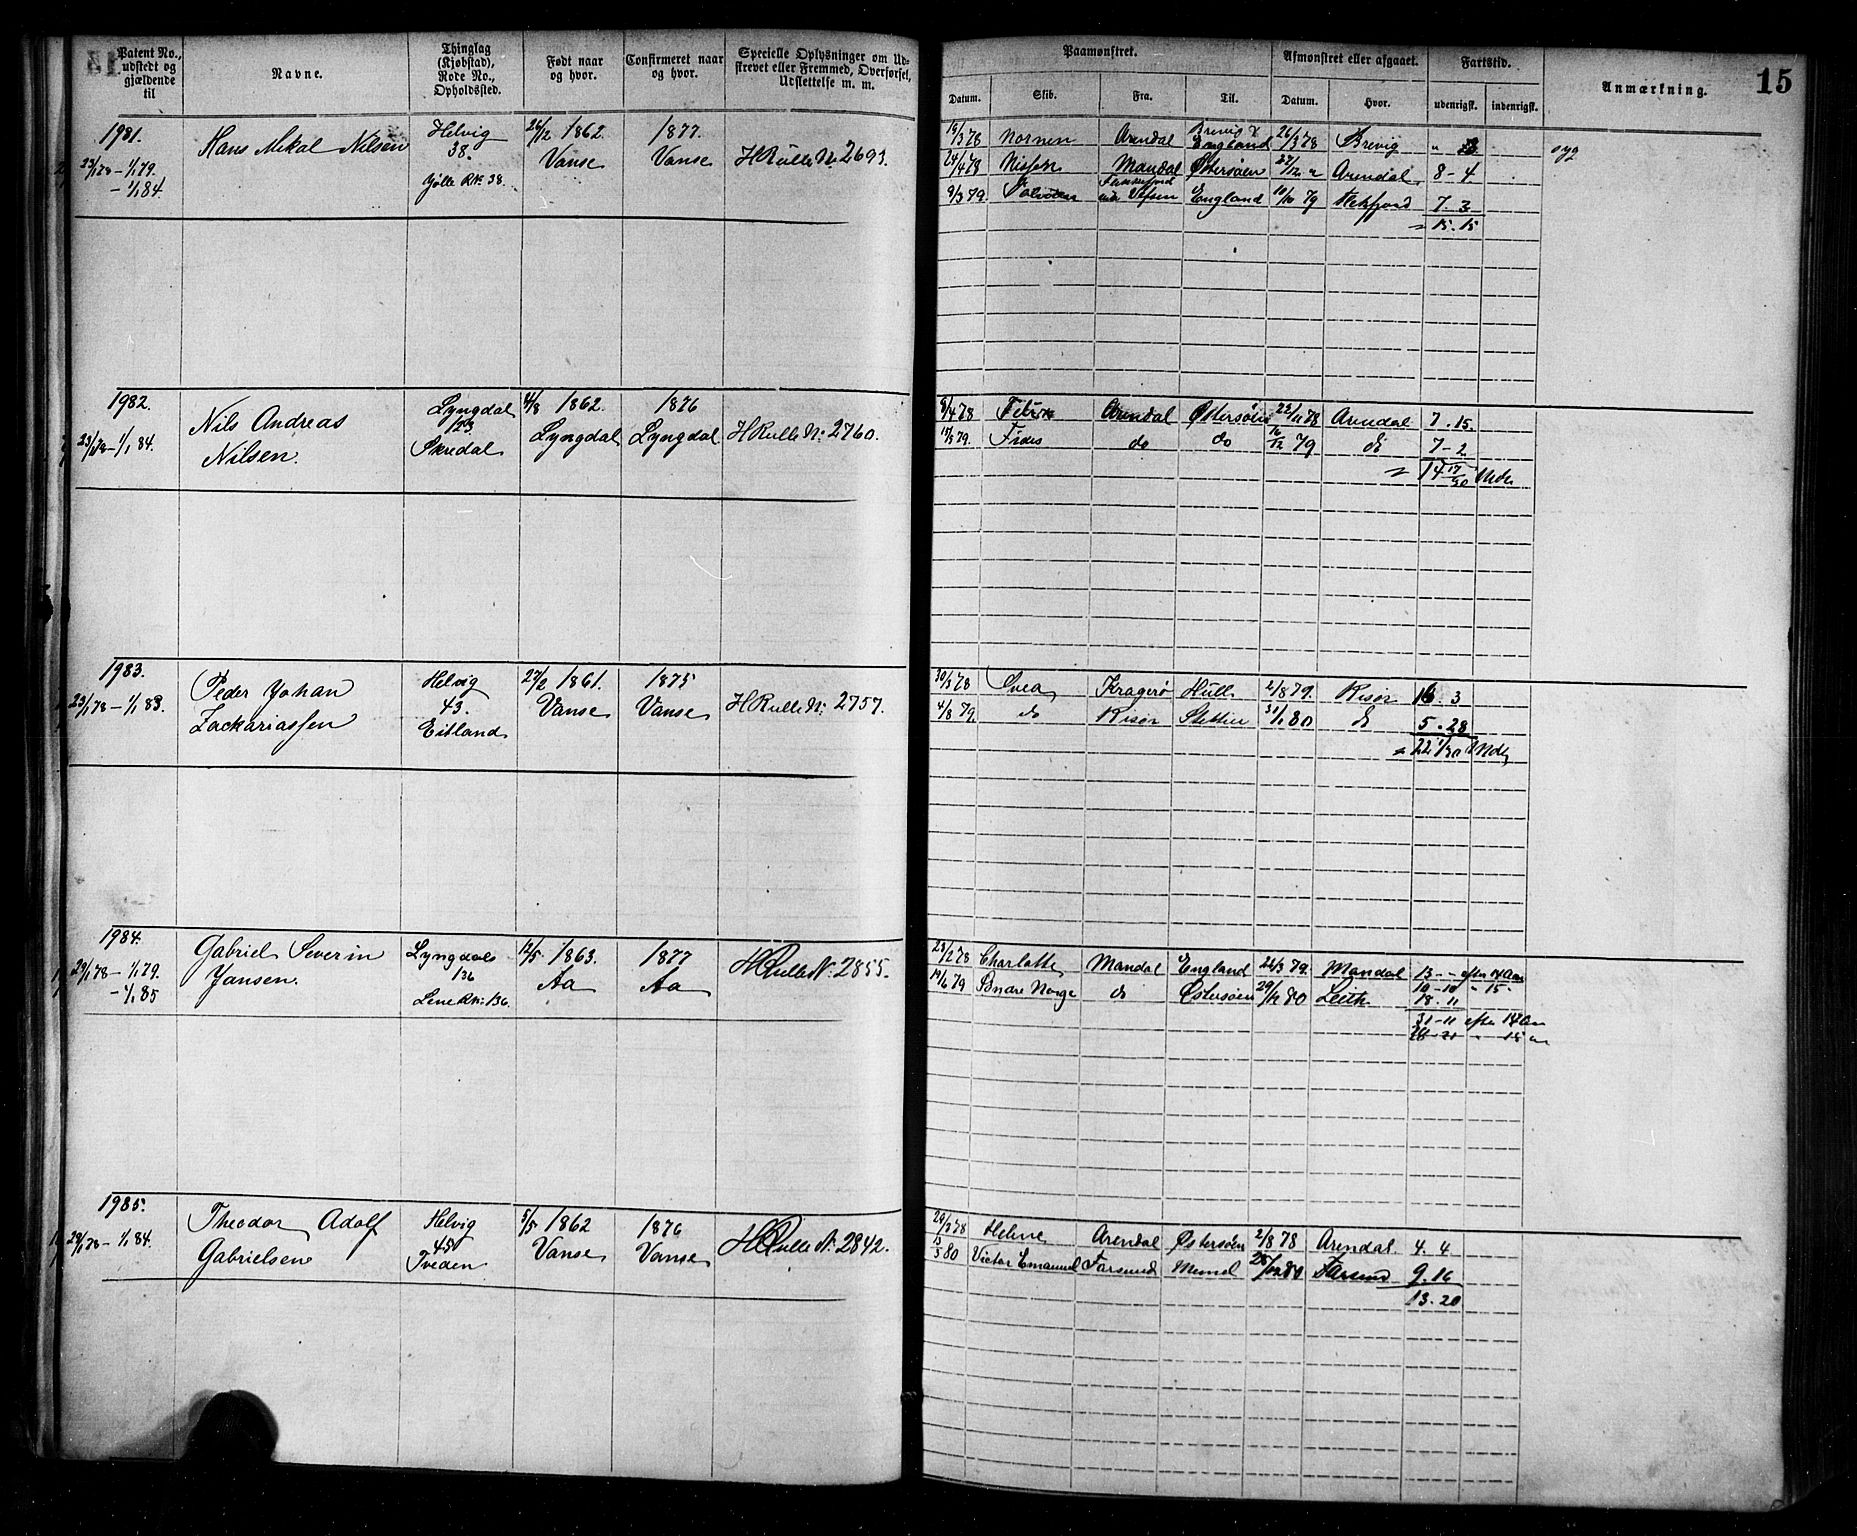 Patent No.,
udstedt og
gjældende
til
Navne.
Thinglag
(Kjøbstad),
Rode No.,
Opholdssted.
Født naar
og hvor.
Confirmeret naar
og hvor.
Specielle Oplysninger om Ud-
skrevet eller Fremmed, Overførsel,
Udslettelse m. m.
Paamønstret.
Afmønstret eller afgaaet.
Fartstid.
Anmærkning.
15
Datum.
Skib.
Fra.
Til.
Datum.
Hvor.
udenrigsk.
indenrigsk.
1981.
23/1 78 – 1/1 79.
– 1/1 84.
Hans Mikal Nilsen
Helvig
38.
Gjølle RN: 38.
26/12 1862.
Vanse
1877.
Vanse
H Rulle N: 2693.
18/3 78 Nornen Arendal Brevig &
England 26/3 78 Brevig
syg
24/4 78 Nissen Mandal Østersøen 27/12 " Arendal 8 - 4
9/3 79. England 10/10 79 Flekkfjord 7. 3
= 15. 15
1982.
23/1 78 – 1/1 84.
Nils Andreas
Nilsen.
Lyngdal
123.
Skredal
4/8 1862.
Lyngdal
1876
Lyngdal
H Rulle N: 2760.
9/4 78 Arendal Østersøen 22/11 78 Arendal 7. 15.
15/5 79. Frides do do 16/12 79 do 7 - 2
= 14 17/30 Mdr
1983.
23/1 78 – 1/1 83.
Peder Johan
Zackariassen
Helvig
43.
Eitland
27/2 1861.
Vanse
1875
Vanse
H Rulle N: 2757.
30/3 78 Svea Kragerø Hull 2/8 79. Risør 16. 3
4/8 79. do Risør Stettin 31/1 80 do 5. 28
= 22 1/30 Mdr
1984.
29/1 78 – 1/1 79.
– 1/1 85
Gabriel Severin
Jansen.
Lyngdals
136
Lene RN: 136.
12/5 1863.
Aa
1877
Aa
H Rulle N: 2855.
23/2 78 Charlotte Mandal England 22/3 79. Mandal 13 - " efter 14 Aar
10 - 10 " 15 "
19/6 79 Søndre Norge do Østersøen 29/12 80 Leith 18. 11
31 - 11 efter 14 Aar
1985.
29/1 78 – 1/1 84.
Theodor Adolf
Gabrielsen
Helvig
45
Tveden
5/5 1862
Vanse
1876
Vanse
H Rulle N: 2842.
20/3 78 Helene Arendal Østersøen 2/8 78 Arendal 4. 4
13/3 80 Victor Emanuel Farsund Memel Farsund 9. 16
13. 20